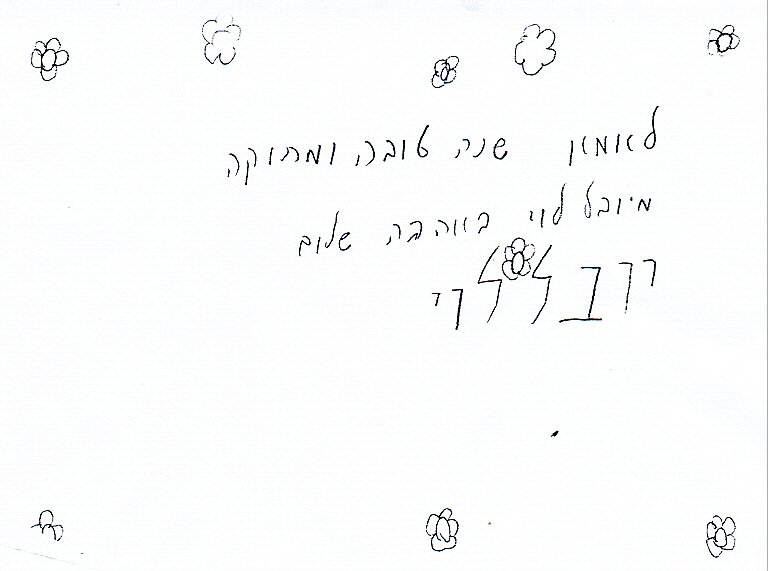 לאומאן שנה טובה ומתוקה
מיובל לוי באהבה שלום
יובל לוי